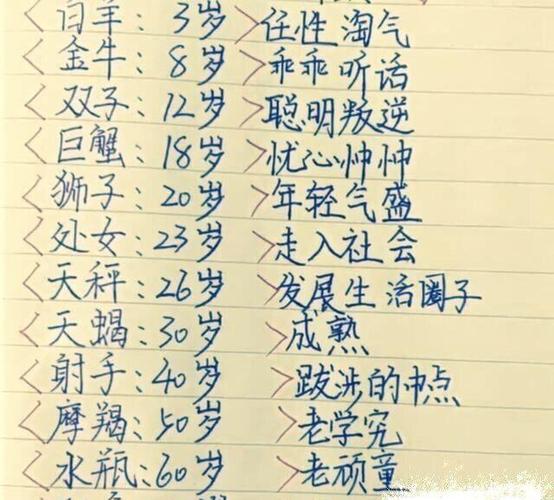 <白羊: 3岁>任性淘气
<金牛: 8岁>乖乖听话
<双子: 12岁>聪明叛逆
<巨蟹: 18岁>忧心忡忡
<狮子: 20岁>年轻气盛
<处女: 23岁>走入社会
<天秤: 26岁>发展生活圈子
<天蝎: 30岁>成熟
<射手: 40岁>跋涉的中点
<摩羯: 50岁>老学究
<水瓶: 60岁>老顽童